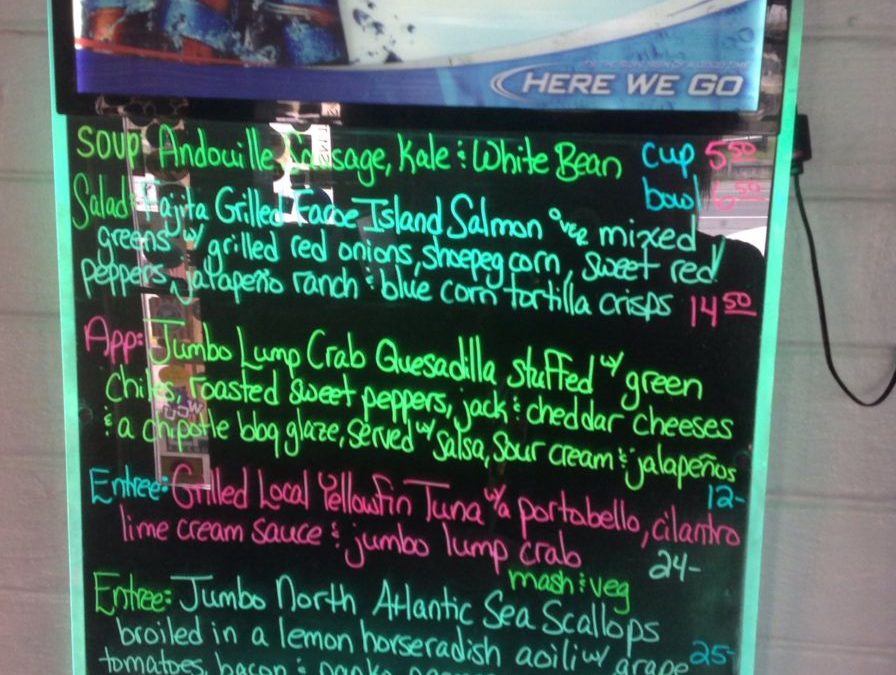 HERE WE GO
Soup: Andouille Sausage, Kale & White Bean cup 5.50
bowl 6.50
Salad: Fajita Grilled Faroe Island Salmon over mixed
greens w/ grilled red onions, shoepeg corn, sweet red
peppers, jalapeño ranch & blue corn tortilla crisps 14.50
App: Jumbo Lump Crab Quesadilla stuffed w/ green
chiles, roasted sweet peppers, jack & cheddar cheeses
& a chipotle bbq glaze, served w/ salsa, sour cream & jalapeños
12-
Entree: Grilled Local Yellowfin Tuna w/a portobello, cilantro
lime cream sauce & jumbo lump crab 24-
mash & veg
Entree: Jumbo North Atlantic Sea Scallops
broiled in a lemon horseradish aoili w/ grape 25-
tomatoes, bacon & panko